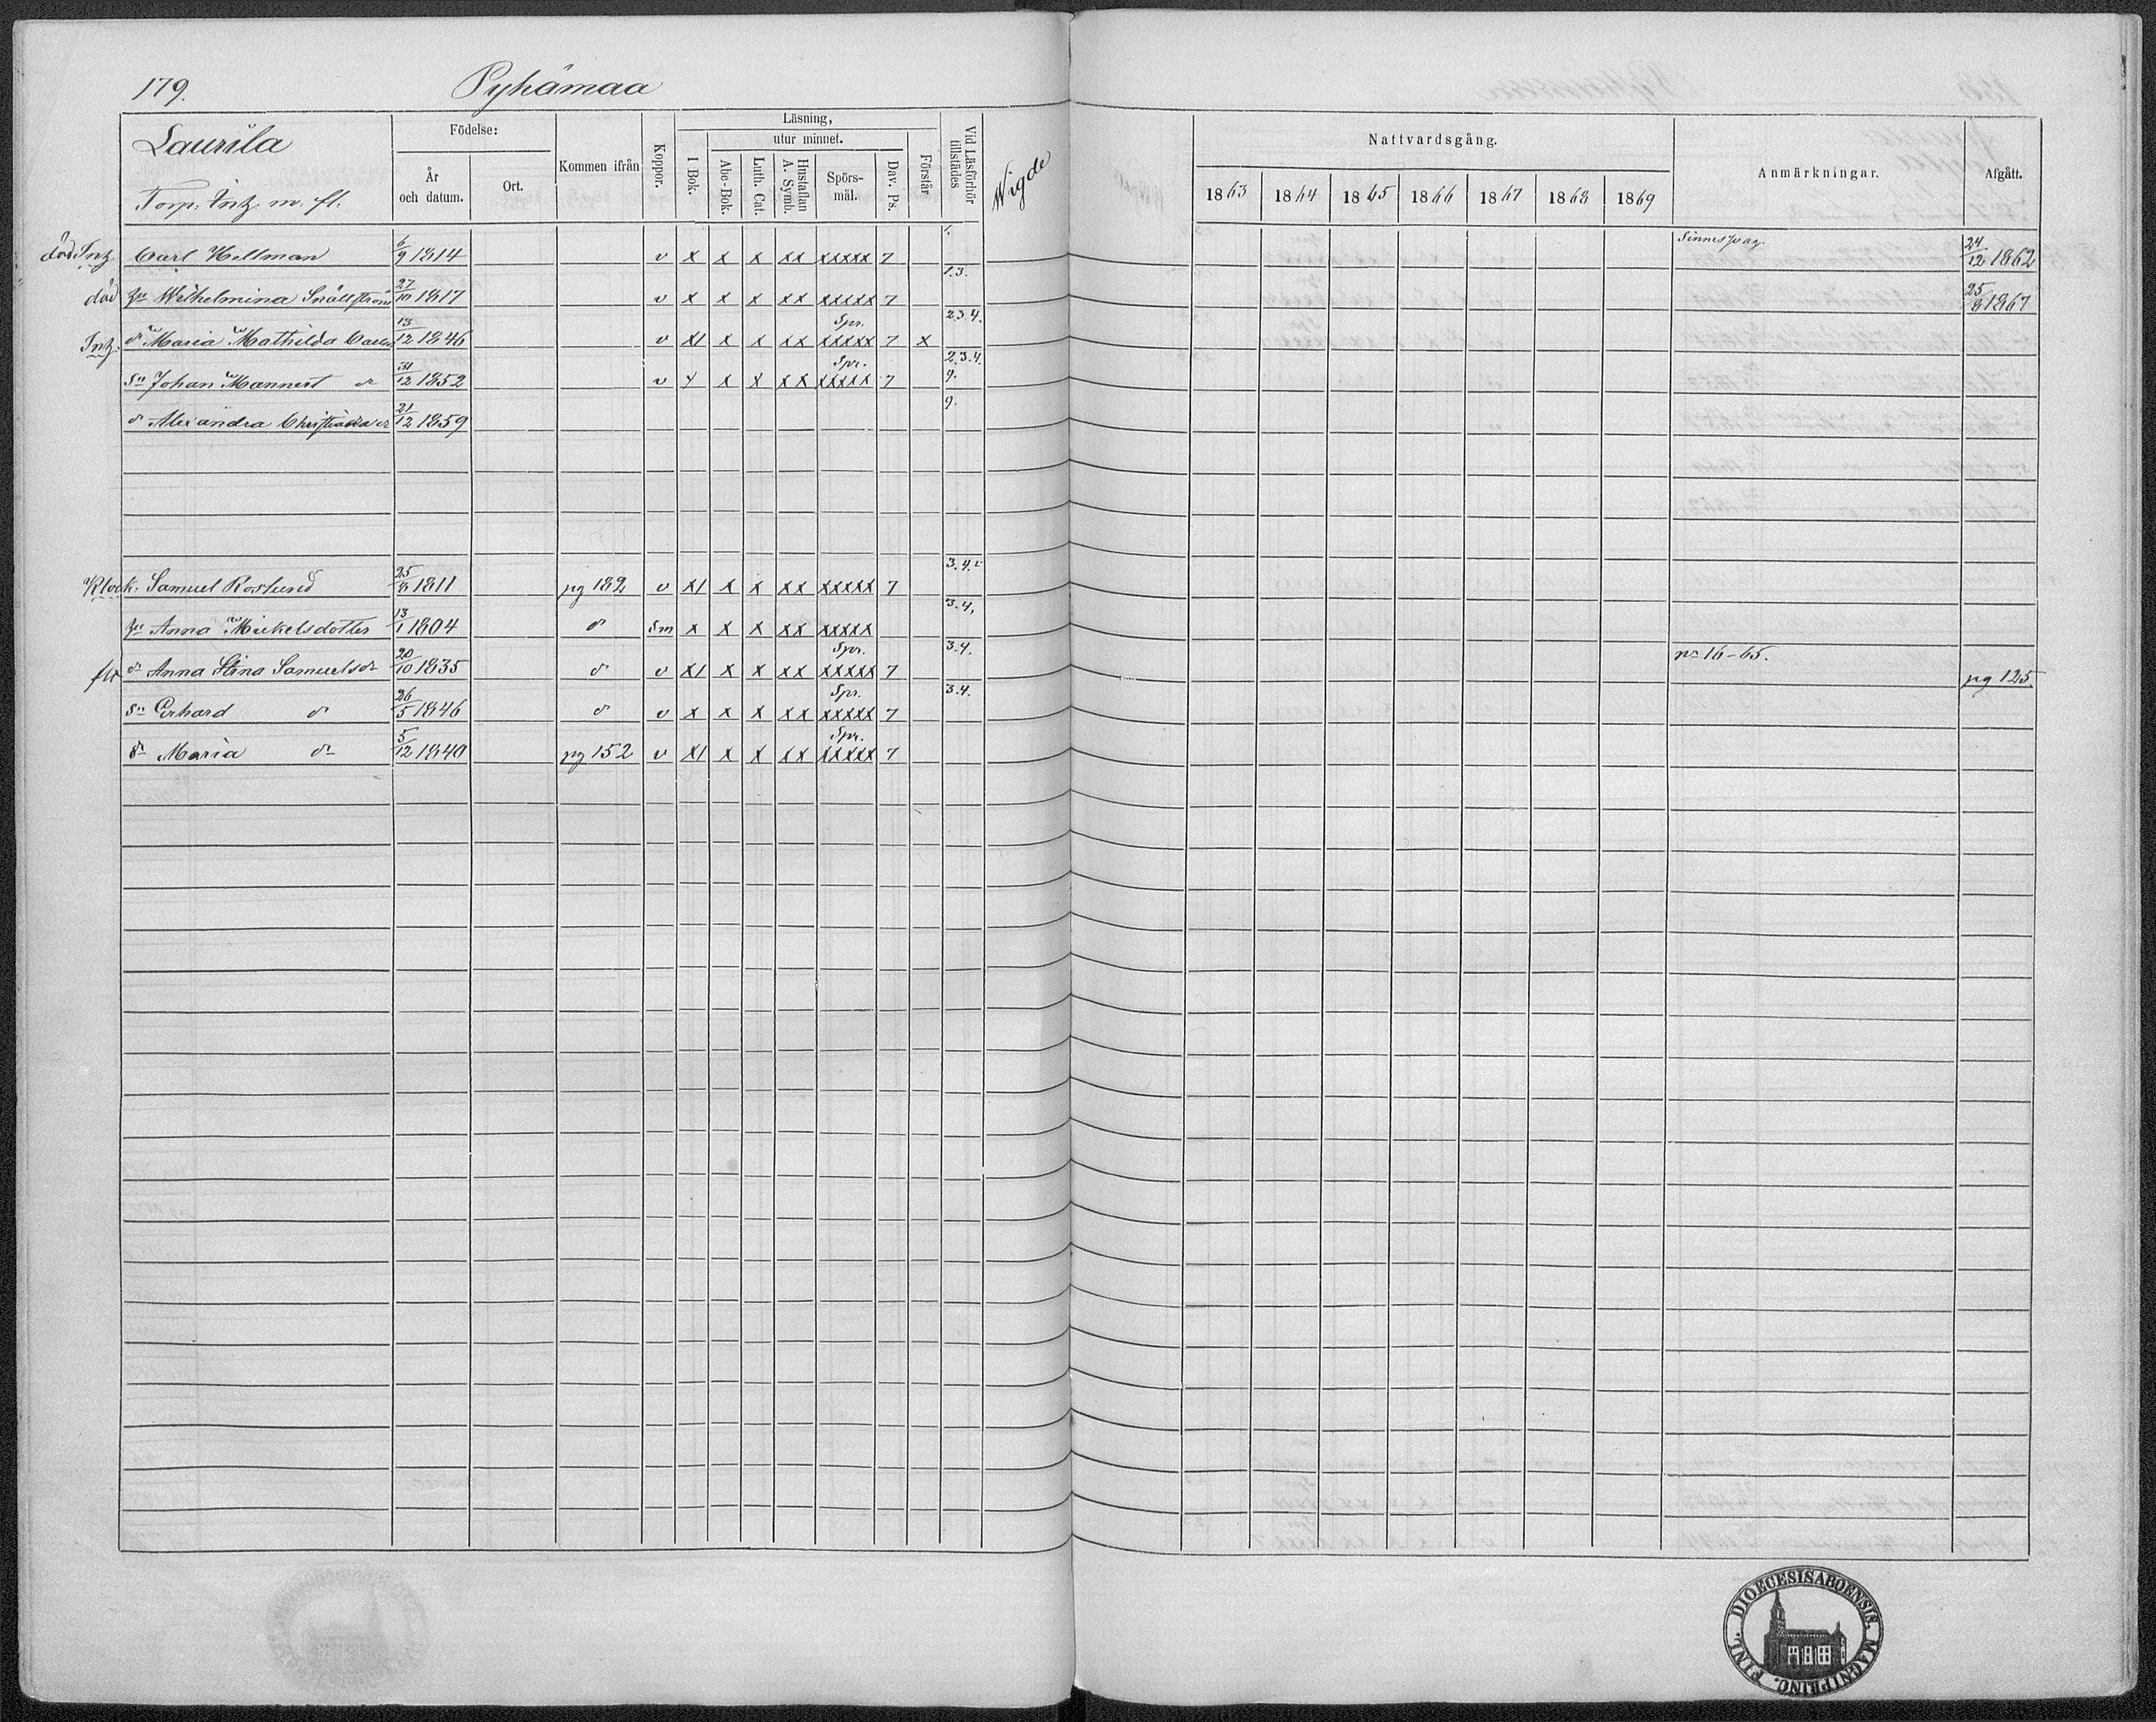 179. Pyhämaa
Laurila
Torp. Intz. m. fl.
Födelse:
År och datum.
Ort.
Kommen ifrån
Koppor.
Läsning,
I Bok.
utur minnet.
Abc-Bok.
Luth. Cat.
Hustaflan A. Symb.
Spörs-mål.
Dav. Ps.
Förstår
Vid Läsförhör tillstädes
Wigde
Nattvardsgång.
1863 1864 1865 1866 1867 1868 1869
Anmärkningar.
Afgått.
död Intz Carl Hellman 6/9 1814 v x x x xx xxxxx 7 1. Sinnessvag. 24/12 1862
död hu Wilhelmina Snällström 27/10 1817 v x x x xx xxxxx 7 1.3. 25/8 1867
Intz. dr Maria Mathilda Carlsd 13/12 1846 v x1 x x xx Spr. xxxxx 7 x 2.3.4.
sn Johan Mannert dr 31/12 1852 v x x x xx Spr. xxxxx 7 2.3.4. 9.
dr Alexandra Christina dr 21/12 1859 9.
Klock. Samuel Roslund 25/8 1811 pg 182 v x1 x x xx xxxxx 7 3.4.
hu Anna Mickelsdotter 13/1 1804 dr sm x x x xx xxxxx 3.4.
fltr dr Anna Stina Samuelsdr 20/10 1835 dr v x1 x x xx Spr. xxxxx 7 3.4. pr 16-65. pg 125.
sn Erhard dr 26/5 1846 dr v x x x xx Spr. xxxxx 7 3.4.
dr Maria dr 5/12 1840 pg 152 v x1 x x xx Spr. xxxxx 7
FINL. DIOECESIS ABOENSIS. MAGNI PRINC.